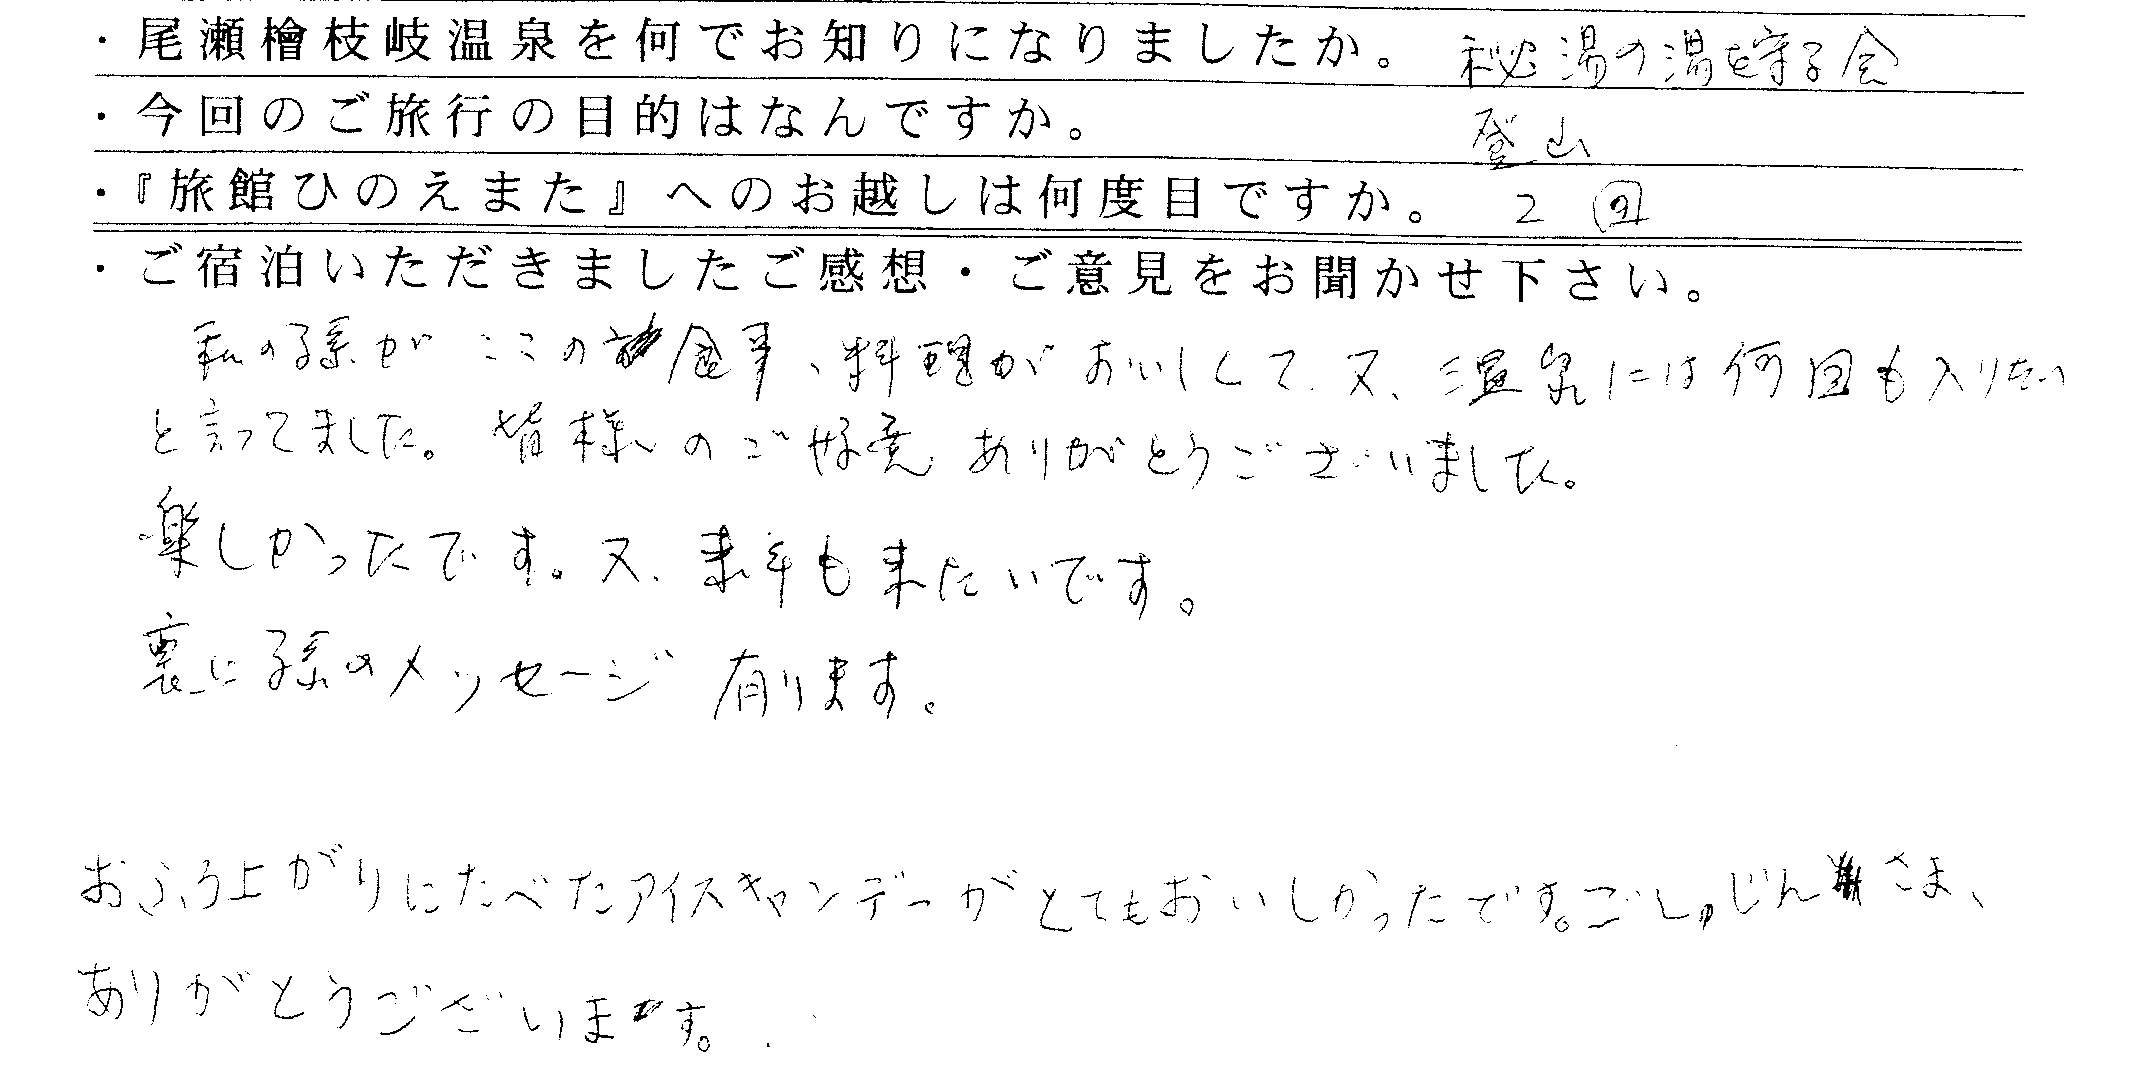 ・尾瀬檜枝岐温泉を何でお知りになりましたか。 秘湯の湯を守る会
・今回のご旅行の目的はなんですか。 登山
・『旅館ひのえまた』へのお越しは何度目ですか。 2回
・ご宿泊いただきましたご感想・ご意見をお聞かせ下さい。
私の孫がここの食事、料理がおいしくて、又、温泉には何回も入りたい
と言ってました。皆様のご好意ありがとうございました。
楽しかったです。又、来年も来たいです。
裏に孫のメッセージ有ります。
おふろ上がりにたべたアイスキャンデーがとてもおいしかったです。ごしゅじんさま、
ありがとうございます。